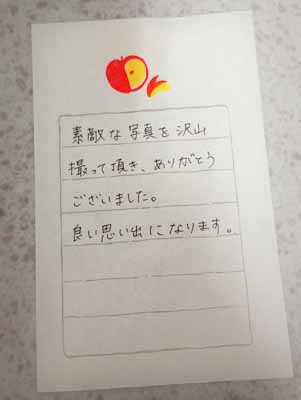 素敵な写真を沢山
撮って頂き、ありがとう
ございました。
良い思い出になります。